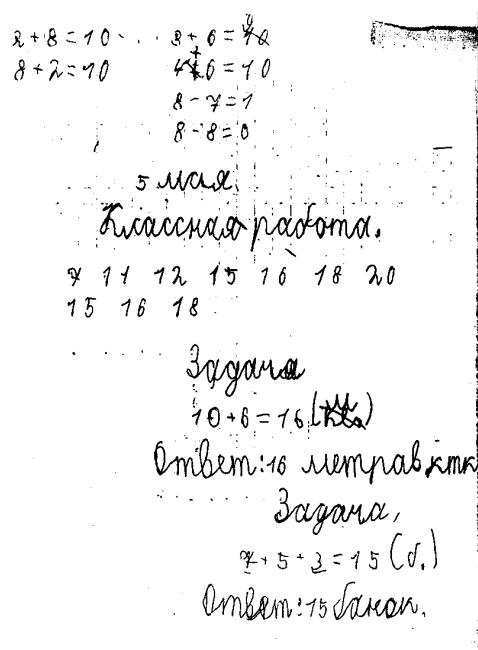 2+8=10 3+6=9
8+2=10 4+6=10
8-7=1
8-8=0
5 мая
Классная работа.
7 11 12 15 16 18 20
15 16 18
Задача
10+6=16(м)
Ответ:16 метрав
Задача,
7+5+3=15(б.)
Ответ:15 банок.